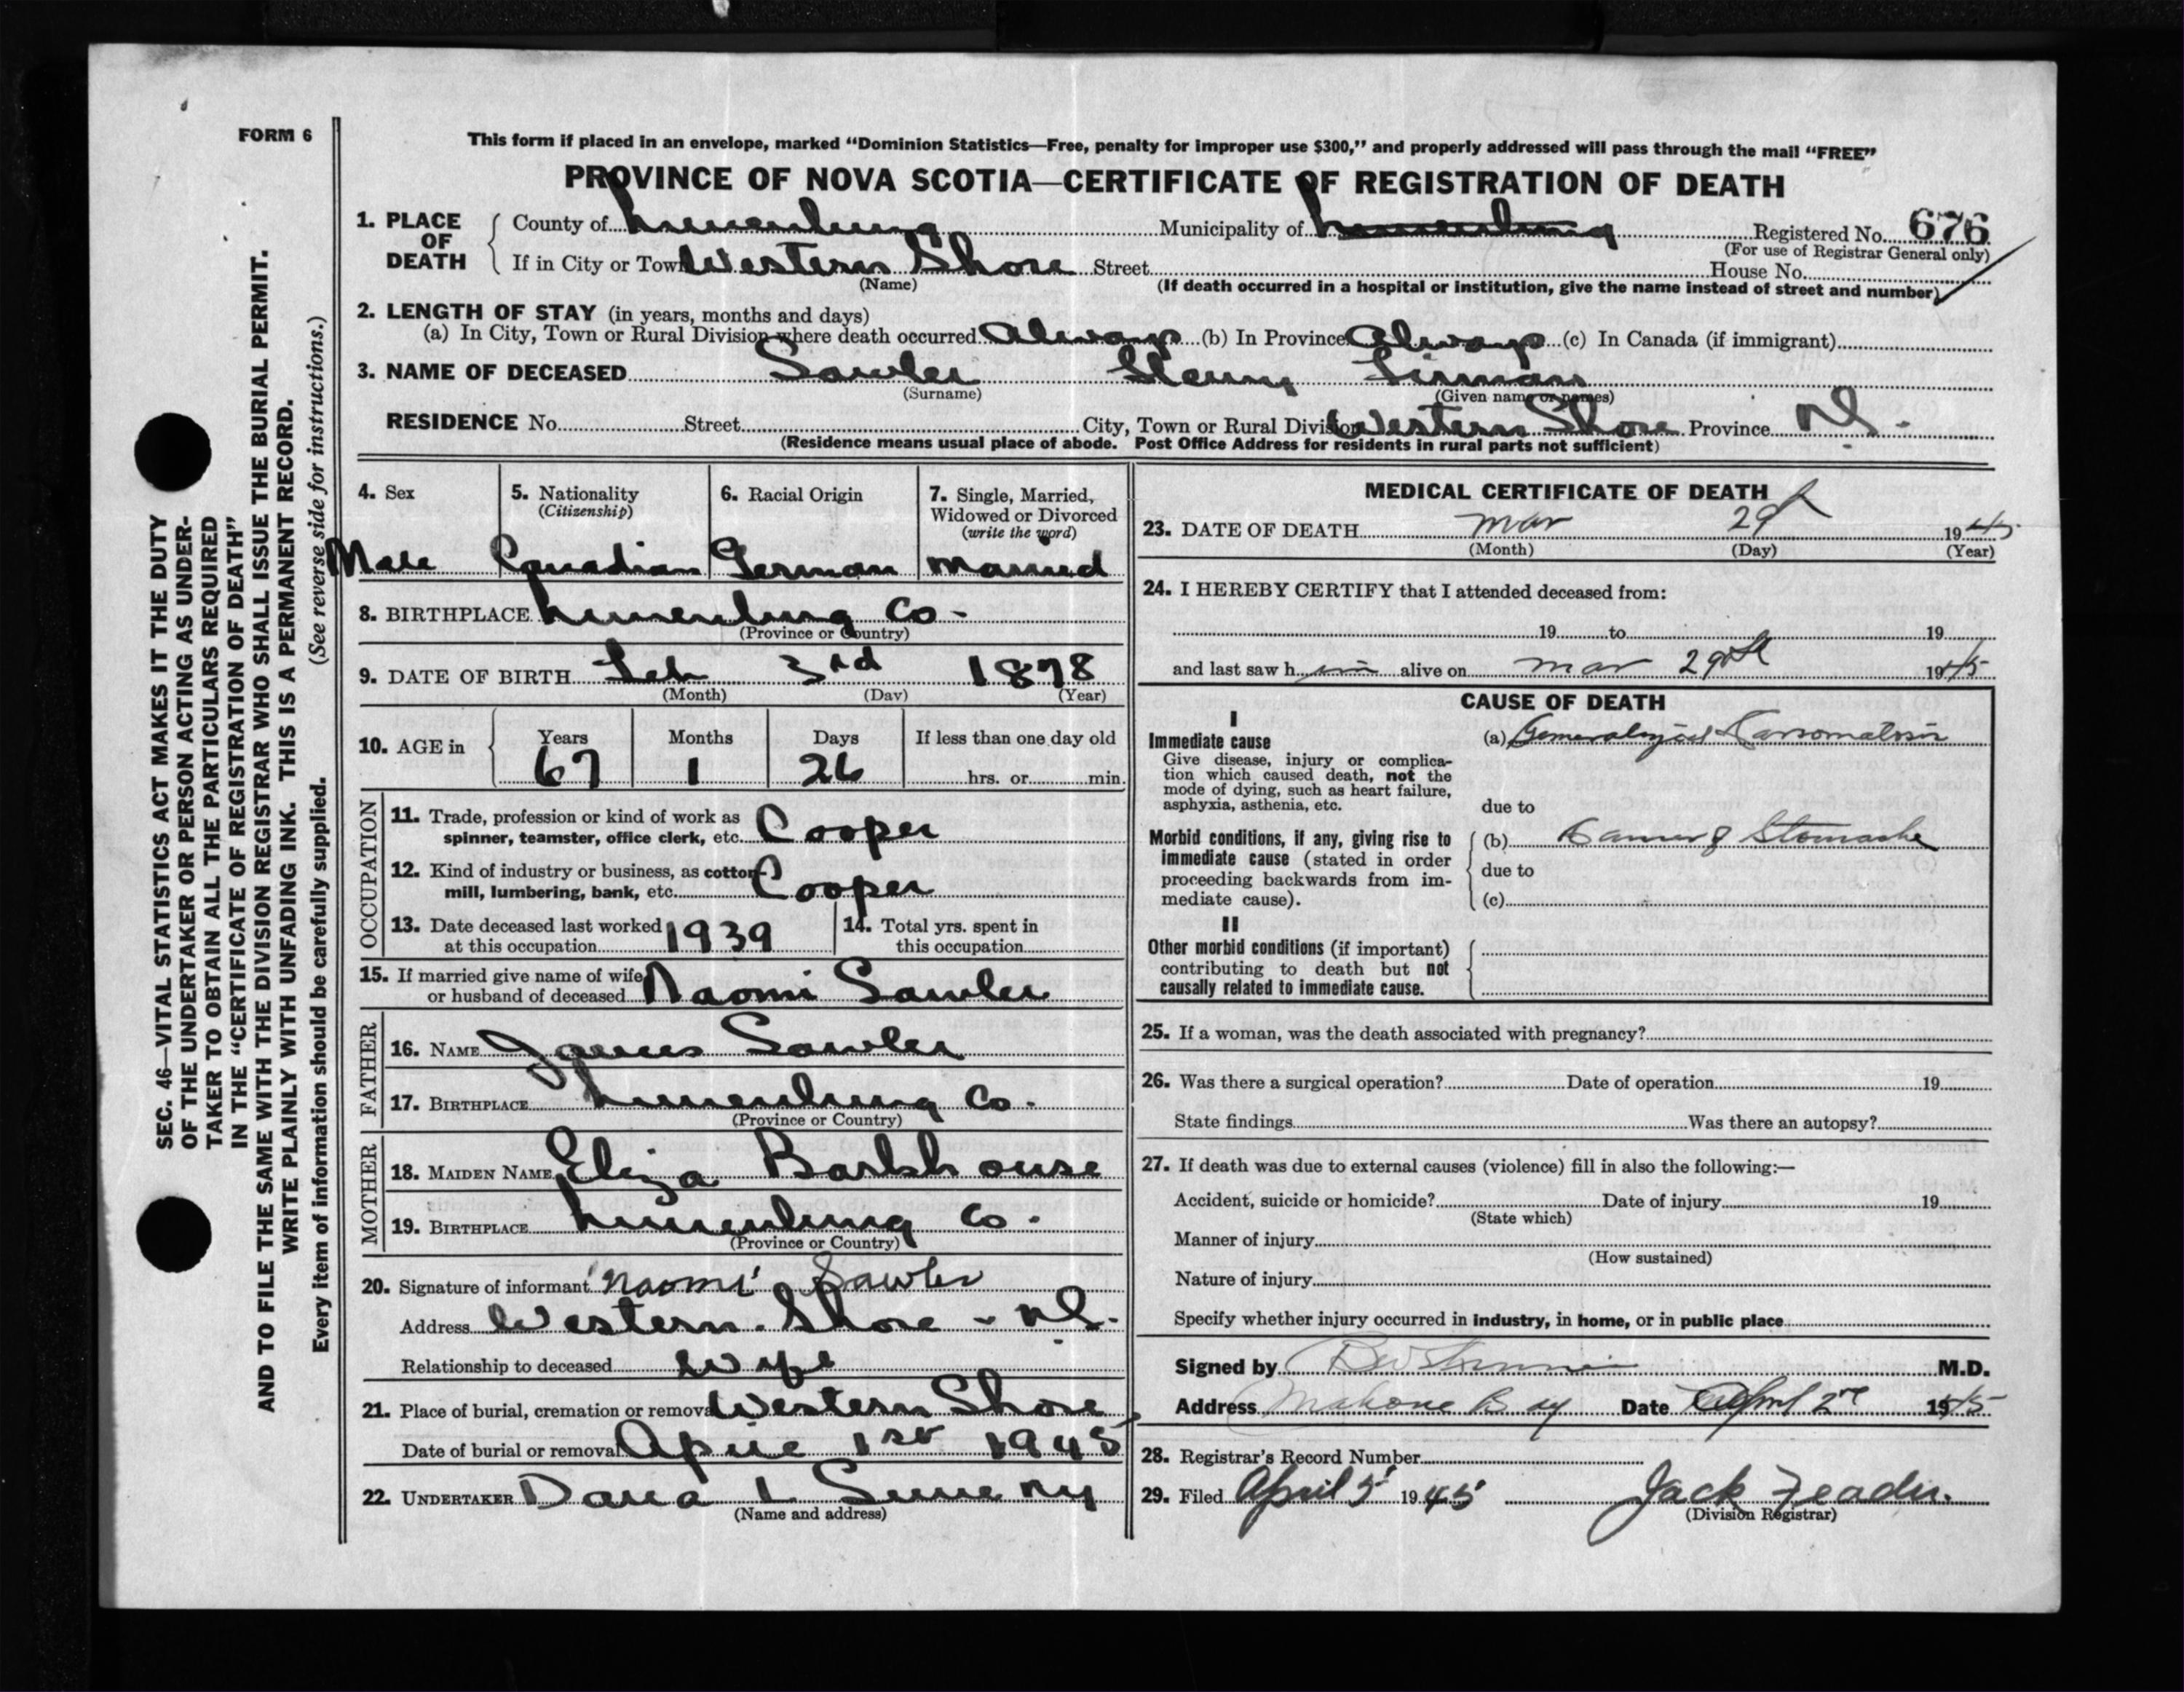 FORM 6
This form if placed in an envelope, marked “Dominion Statistics—Free, penalty for improper use $300,” and properly addressed will pass through the mail “FREE”
PROVINCE OF NOVA SCOTIA—CERTIFICATE OF REGISTRATION OF DEATH
1. PLACE OF DEATH County of Lunenburg Municipality of Registered No. 676
(For use of Registrar General only)
If in City or Town Western Shore Street House No.
(Name) (If death occurred in a hospital or institution, give the name instead of street and number)
2. LENGTH OF STAY (in years, months and days)
(a) In City, Town or Rural Division where death occurred Always (b) In Province Always (c) In Canada (if immigrant)
3. NAME OF DECEASED Sawler Henry
(Surname) (Given name or names)
RESIDENCE No. Street City, Town or Rural Division Western Shore Province N.S.
(Residence means usual place of abode. Post Office Address for residents in rural parts not sufficient)
4. Sex 5. Nationality 6. Racial Origin 7. Single, Married,
(Citizenship) Widowed or Divorced
(write the word)
Male Canadian German Married
8. BIRTHPLACE Lunenburg Co.
(Province or Country)
9. DATE OF BIRTH Feb 3rd 1878
(Month) (Day) (Year)
10. AGE in Years Months Days If less than one day old
67 1 26 hrs. or min.
OCCUPATION
11. Trade, profession or kind of work as
spinner, teamster, office clerk, etc. Cooper
12. Kind of industry or business, as cotton
mill, lumbering, bank, etc. Cooper
13. Date deceased last worked 14. Total yrs. spent in
at this occupation 1939 this occupation
15. If married give name of wife
or husband of deceased Naomi Sawler
FATHER
16. NAME James Sawler
17. BIRTHPLACE Lunenburg Co.
(Province or Country)
MOTHER
18. MAIDEN NAME Eliza Barkhouse
19. BIRTHPLACE Lunenburg Co.
(Province or Country)
20. Signature of informant Naomi Sawler
Address Western Shore - N.S.
Relationship to deceased wife
21. Place of burial, cremation or removal Western Shore
Date of burial or removal April 1st 1945
22. UNDERTAKER Dana L
(Name and address)
MEDICAL CERTIFICATE OF DEATH
23. DATE OF DEATH Mar 29 1945
(Month) (Day) (Year)
24. I HEREBY CERTIFY that I attended deceased from:
19 to 19
and last saw h im alive on Mar 29th 1945
CAUSE OF DEATH
I
Immediate cause (a) Carsomatosis
Give disease, injury or complica-
tion which caused death, not the
mode of dying, such as heart failure,
asphyxia, asthenia, etc.
due to
Morbid conditions, if any, giving rise to (b) Cancer of Stomache
immediate cause (stated in order
proceeding backwards from im- due to
mediate cause). (c)
II
Other morbid conditions (if important)
contributing to death but not
causally related to immediate cause.
25. If a woman, was the death associated with pregnancy?
26. Was there a surgical operation? Date of operation 19
State findings Was there an autopsy?
27. If death was due to external causes (violence) fill in also the following:—
Accident, suicide or homicide? Date of injury 19
(State which)
Manner of injury
(How sustained)
Nature of injury
Specify whether injury occurred in industry, in home, or in public place
Signed by M.D.
Address Mahone Bay Date April 2nd 1945
28. Registrar's Record Number
29. Filed April 5 1945 Jack
(Division Registrar)
SEC. 46—VITAL STATISTICS ACT MAKES IT THE DUTY
OF THE UNDERTAKER OR PERSON ACTING AS UNDER-
TAKER TO OBTAIN ALL THE PARTICULARS REQUIRED
IN THE “CERTIFICATE OF REGISTRATION OF DEATH”
AND TO FILE THE SAME WITH THE DIVISION REGISTRAR WHO SHALL ISSUE THE BURIAL PERMIT.
WRITE PLAINLY WITH UNFADING INK. THIS IS A PERMANENT RECORD.
Every item of information should be carefully supplied. (See reverse side for instructions.)